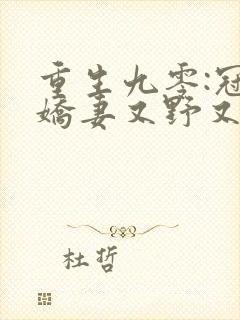 重生九零:冠
嬌妻又野又
杜哲